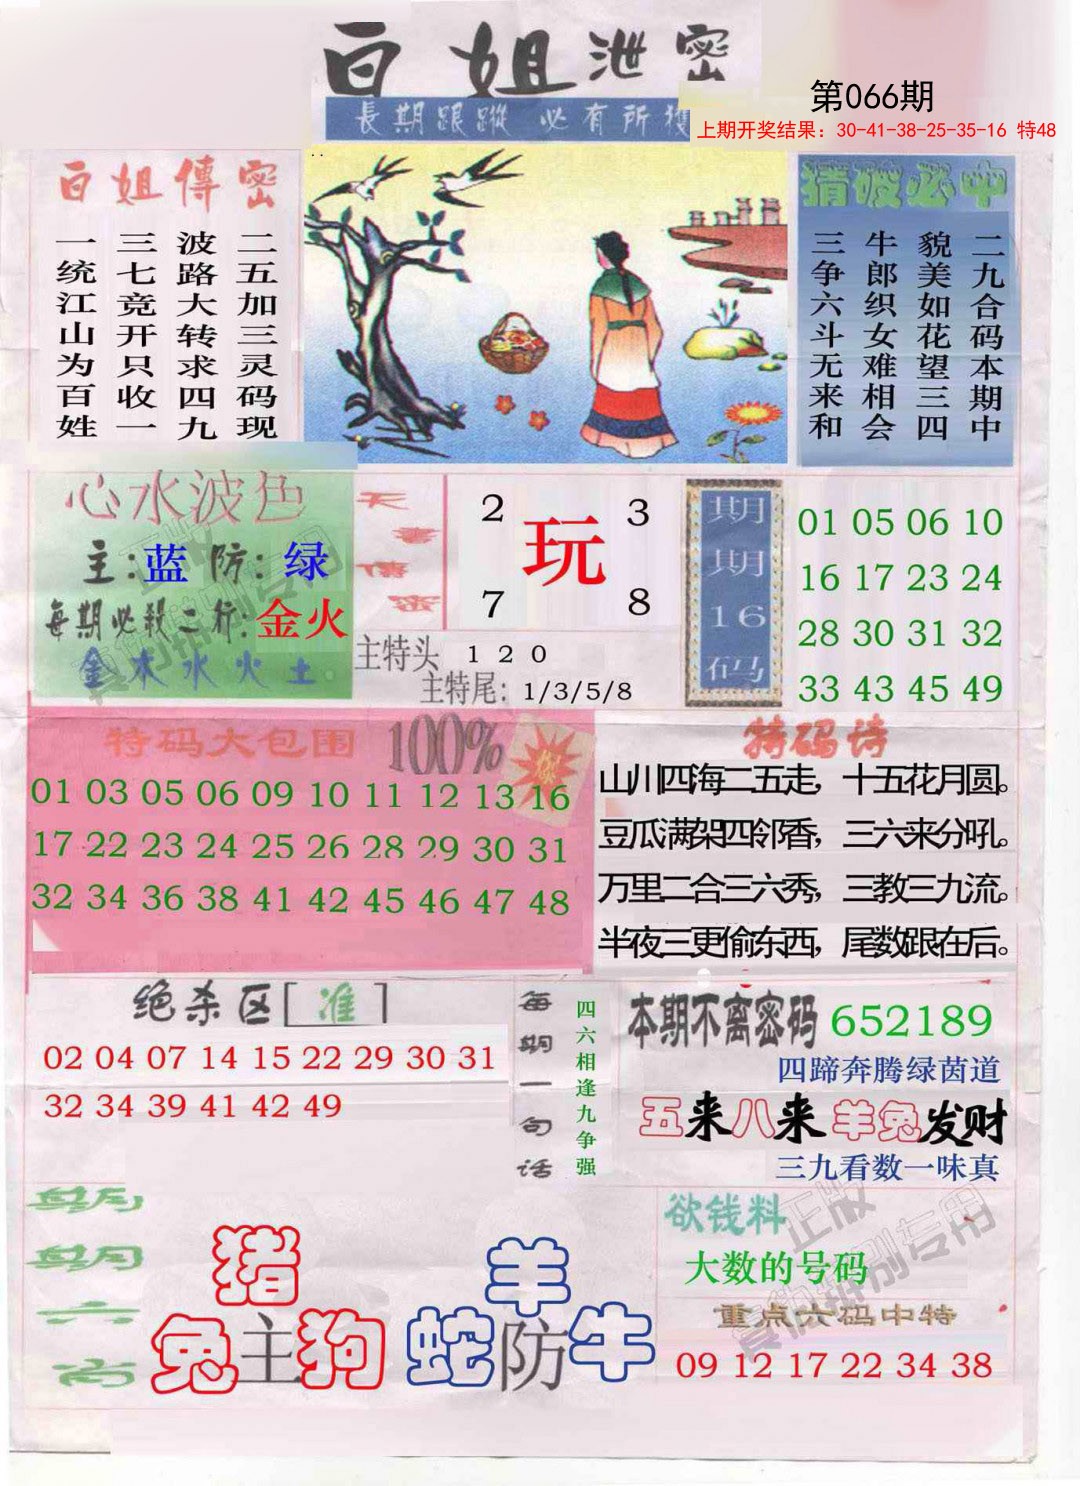 百姐泄密
長期跟蹤 必有所獲
第066期
上期开奖结果：30-41-38-25-35-16 特48
百姐傳密
二五加三灵码现
波路大转求四九
三七竞开只收一
一统江山为百姓
猜破必中
二九合码本期中
貌美如花望三四
牛郎织女难相会
三争六斗无来和
心水波色
主:蓝 防:绿
每期必殺二行:金火
金木水火土
天書傳密
2 3
玩
7 8
主特头 1 2 0
主特尾: 1/3/5/8
期期16码
01 05 06 10
16 17 23 24
28 30 31 32
33 43 45 49
特码大包围 100% 爆
01 03 05 06 09 10 11 12 13 16
17 22 23 24 25 26 28 29 30 31
32 34 36 38 41 42 45 46 47 48
特码诗
山川四海二五走，十五花月圆。
豆瓜满架四邻香，三六来分吼。
万里二合三六秀，三教三九流。
半夜三更偷东西，尾数跟在后。
绝杀区[准]
02 04 07 14 15 22 29 30 31
32 34 39 41 42 49
每期一句话
四六相逢九争强
本期不离密码 652189
四蹄奔腾绿茵道
五来八来 羊兔发财
三九看数一味真
猪
兔主狗
羊
蛇防牛
欲钱料
大数的号码
重点六码中特
09 12 17 22 34 38